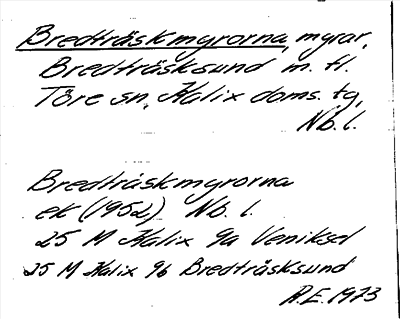 Bredträskmyrorna, myrar,
Bredträsksund m. fl.
Töre sn, Kalix doms. tg,
Nb. l.
Bredträskmyrorna
ek (1952) Nb. l.
25 M Kalix 9a Veniksel
25 M Kalix 9b Bredträsksund
R.E. 1973